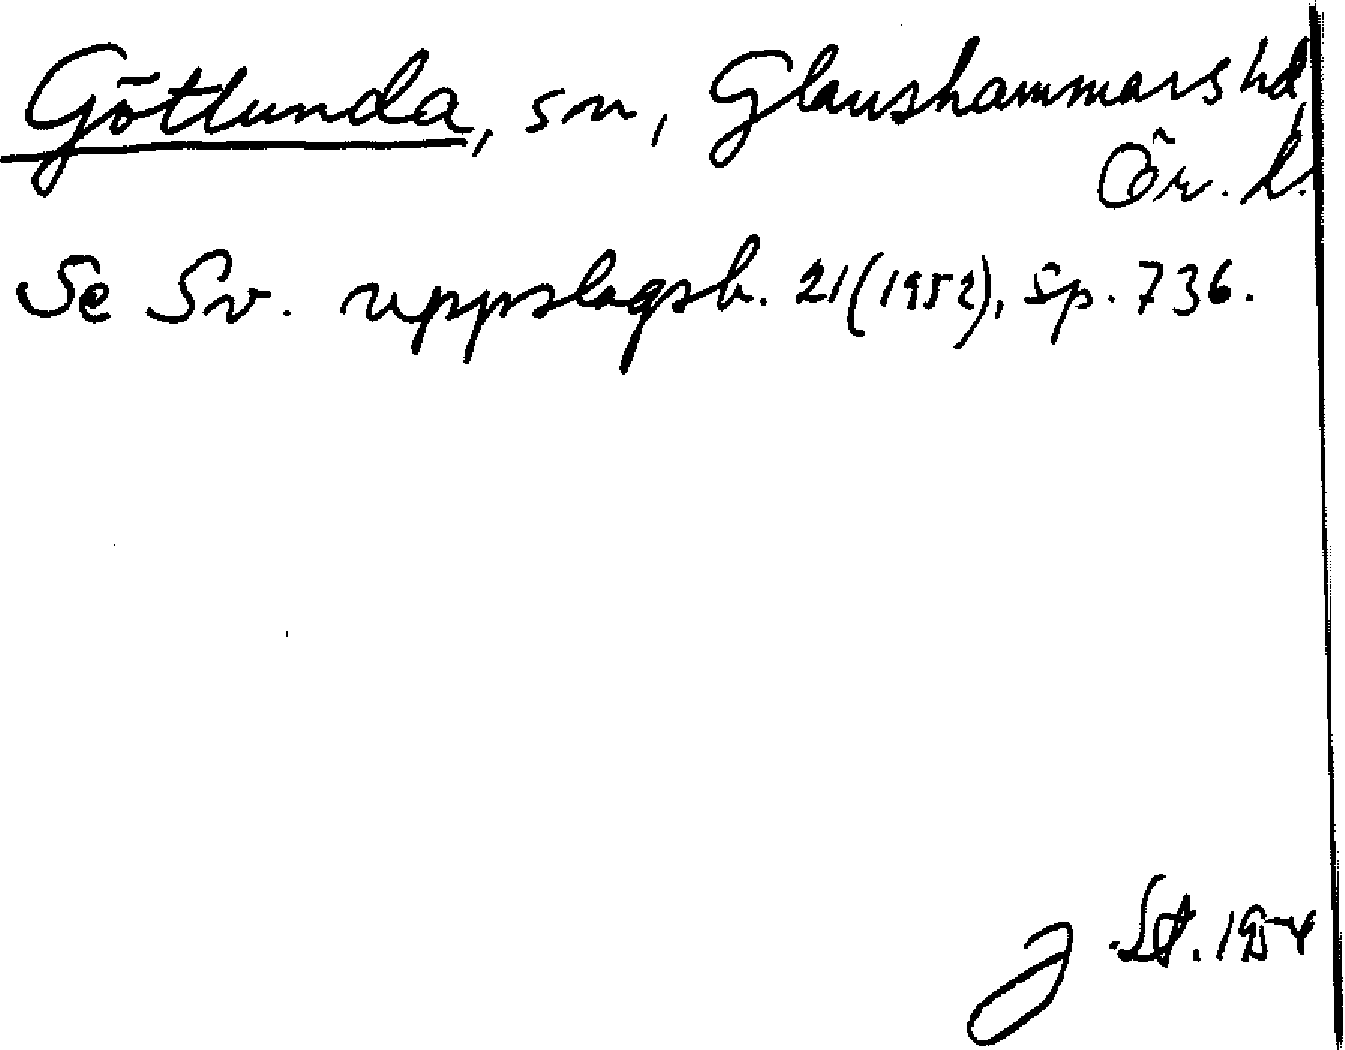 Götlunda, sn, Glanshammars hd,
Ör. l.
Se Sv. uppslagsb. 21(1952), sp. 736.
J. St. 1954